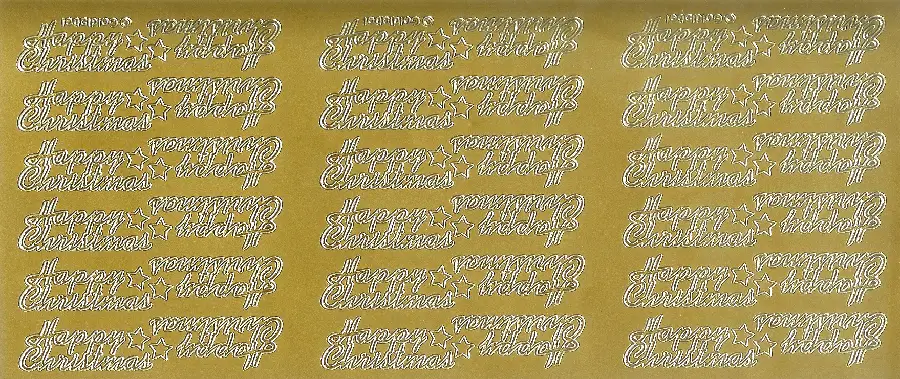 Happy Christmas Happy Christmas Happy Christmas
Christmas Happy Christmas Happy Christmas Happy
Happy Christmas Happy Christmas Happy Christmas
Christmas Happy Christmas Happy Christmas Happy
Happy Christmas Happy Christmas Happy Christmas
Christmas Happy Christmas Happy Christmas Happy
Happy Christmas Happy Christmas Happy Christmas
Christmas Happy Christmas Happy Christmas Happy
Happy Christmas Happy Christmas Happy Christmas
Christmas Happy Christmas Happy Christmas Happy
Happy Christmas Happy Christmas Happy Christmas
Christmas Happy Christmas Happy Christmas Happy